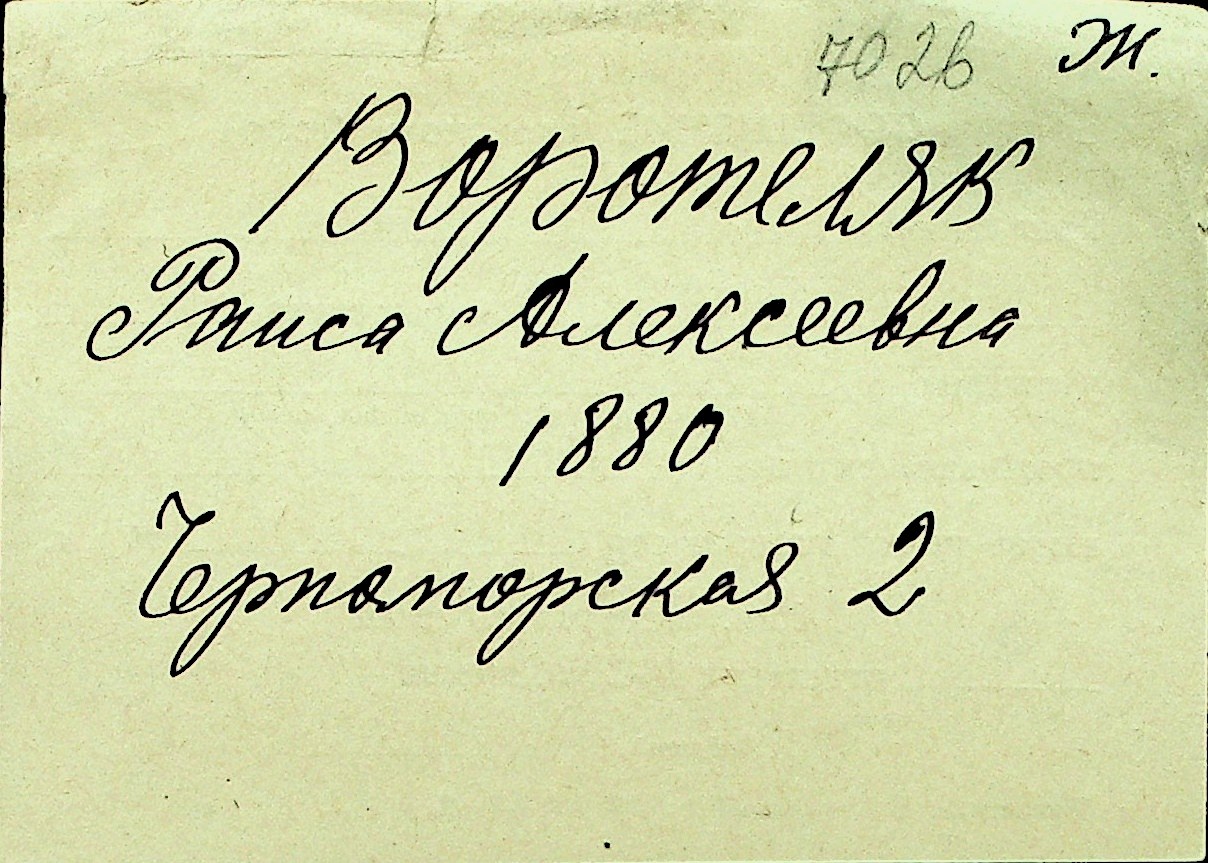 7026 Ж.
Воротеляк
Раиса Алексеевна
1880
Черноморская 2